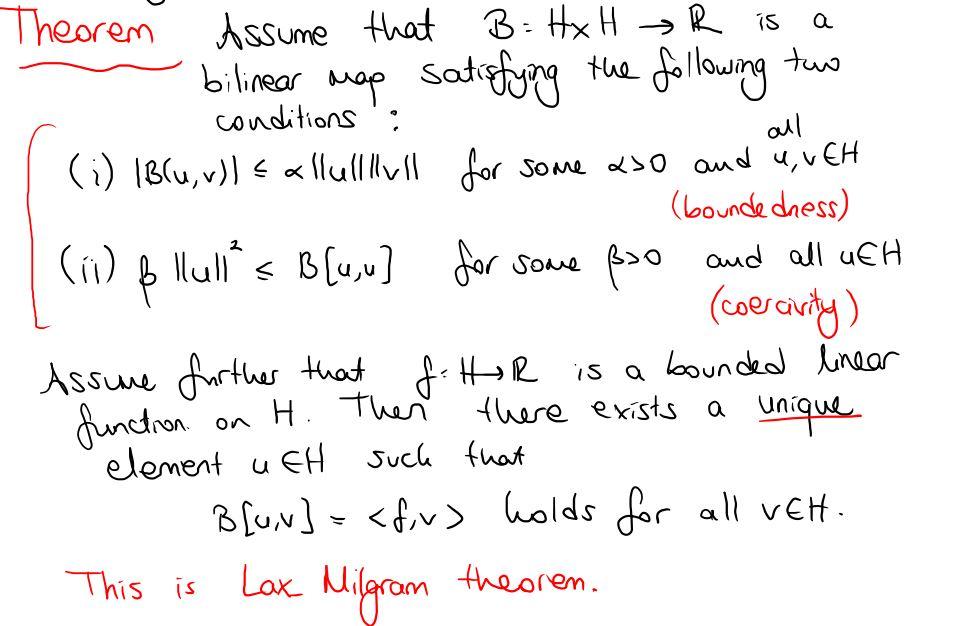 Theorem Assume that B: H×H → ℝ is a
bilinear map satisfying the following two
conditions :
(i) |B(u,v)| ≤ α ||u|| ||v|| for some α>0 and all u,v∈H
(boundedness)
(ii) β ||u||² ≤ B[u,u] for some β>0 and all u∈H
(coercivity)
Assume further that f: H→ℝ is a bounded linear
function on H. Then there exists a unique
element u∈H such that
B[u,v] = <f,v> holds for all v∈H.
This is Lax Milgram theorem.